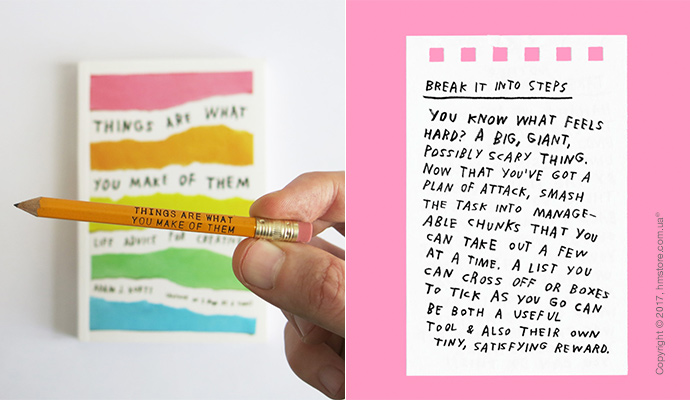 THINGS ARE WHAT
YOU MAKE OF THEM
THINGS ARE WHAT
YOU MAKE OF THEM
LIFE ADVICE FOR CREATIVES
ADAM J. KURTZ
BREAK IT INTO STEPS
YOU KNOW WHAT FEELS
HARD? A BIG, GIANT,
POSSIBLY SCARY THING.
NOW THAT YOU'VE GOT A
PLAN OF ATTACK, SMASH
THE TASK INTO MANAGE-
ABLE CHUNKS THAT YOU
CAN TAKE OUT A FEW
AT A TIME. A LIST YOU
CAN CROSS OFF OR BOXES
TO TICK AS YOU GO CAN
BE BOTH A USEFUL
TOOL & ALSO THEIR OWN
TINY, SATISFYING REWARD.
Copyright © 2017, hmstore.com.ua®